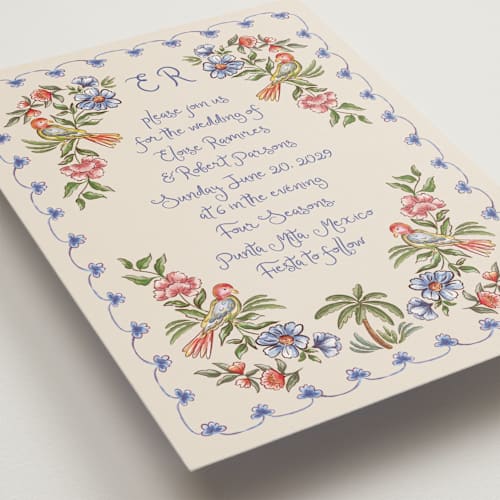 ER
please join us
for the wedding of
Eloise Ramires
& Robert Parsons
Sunday June 20. 2029
at 6 in the evening
Four Seasons.
Punta Mita Mexico
Fiesta to follow